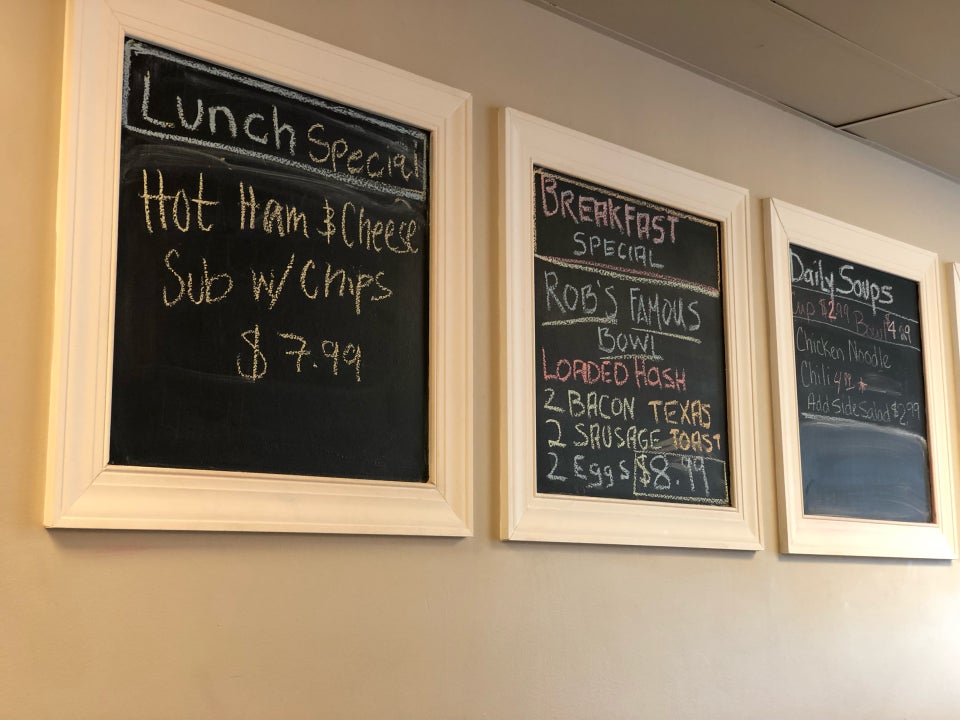 Lunch Special
Hot Ham & Cheese
Sub w/ Chips
$7.99
BREAKFAST
SPECIAL
ROB'S FAMOUS
BOWL
LOADED HASH
2 BACON TEXAS
2 SAUSAGE TOAST
2 Eggs $8.99
Daily Soups
Cup $2.99 Bowl $4.29
Chicken Noodle
Chili
Add Side Salad $2.99